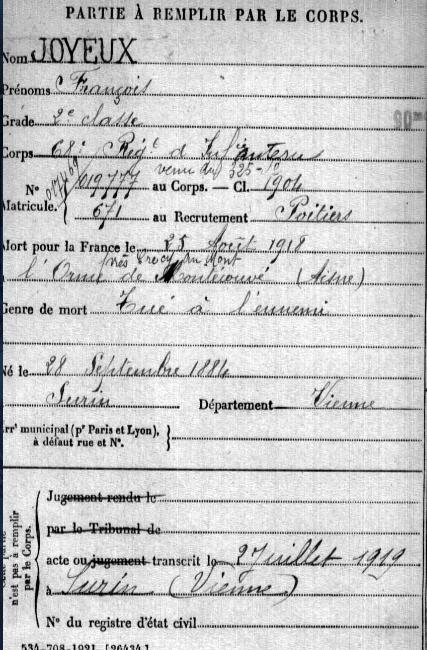 PARTIE À REMPLIR PAR LE CORPS.
Nom JOYEUX
Prénoms François
Grade 2e classe
Corps 68e Régt d'Infanterie
venu du 325e
N° 019777 au Corps. — Cl. 1904
Matricule. 671 au Recrutement Poitiers
Mort pour la France le 25 Août 1918
près Crecy au Mont
à l'Orme de Montécouvé (Aisne)
Genre de mort Tué à l'ennemi
Né le 28 Septembre 1884
Surin Département Vienne
Arrt municipal (pr Paris et Lyon),
à défaut rue et N°.
n'est pas à remplir
par le Corps.
Jugement rendu le
par le Tribunal de
acte ou jugement transcrit le 2 Juillet 1919
à Surin (Vienne)
N° du registre d'état civil
534-708-1921. [26434.]